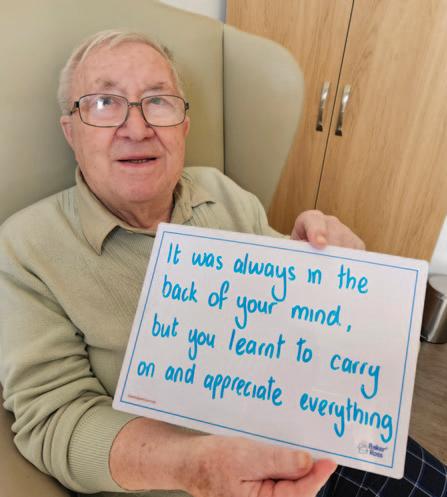 It was always in the
back of your mind,
but you learnt to carry
on and appreciate everything
Baker
Ross